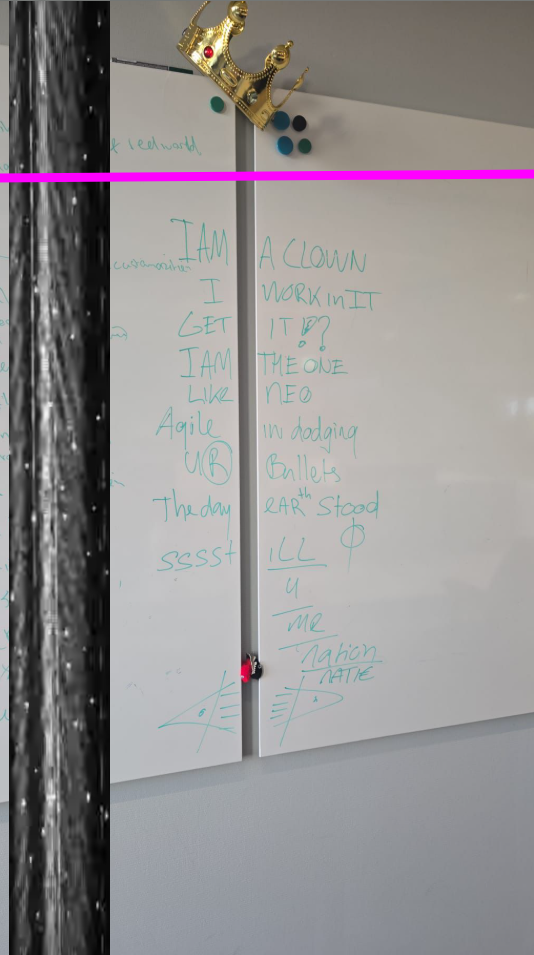 realworld
I AM A CLOWN
I WORK in IT
GET IT ??
I AM THE ONE
LIKE NEO
Agile in dodging
U R Bullets
The day eARth Stood
SSSSt iLL
4
MR
nation
NATIE